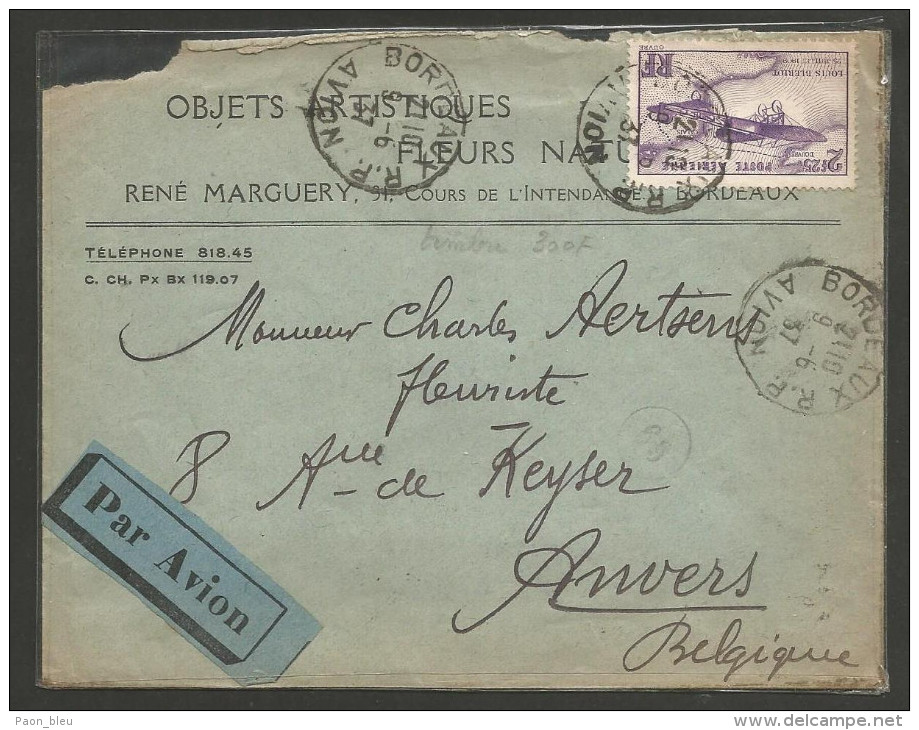 OBJETS ARTISTIQUES
FLEURS NATU
RENÉ MARGUERY, 31, COURS DE L'INTENDANCE BORDEAUX
TÉLÉPHONE 818.45
C. CH. PX BX 119.07
timbre 300F
BORDEAUX R.P. AVION
2110
9-6
37
LOUIS BLÉRIOT
RF
POSTE AÉRIENNE
2F25
BORDEAUX R.P. AVION
2110
9-6
37
Monsieur Charles Aertsens
fleuriste
8 Aue de Keyser
Anvers
Belgique
Par Avion
Paon_bleu
www.delcampe.net